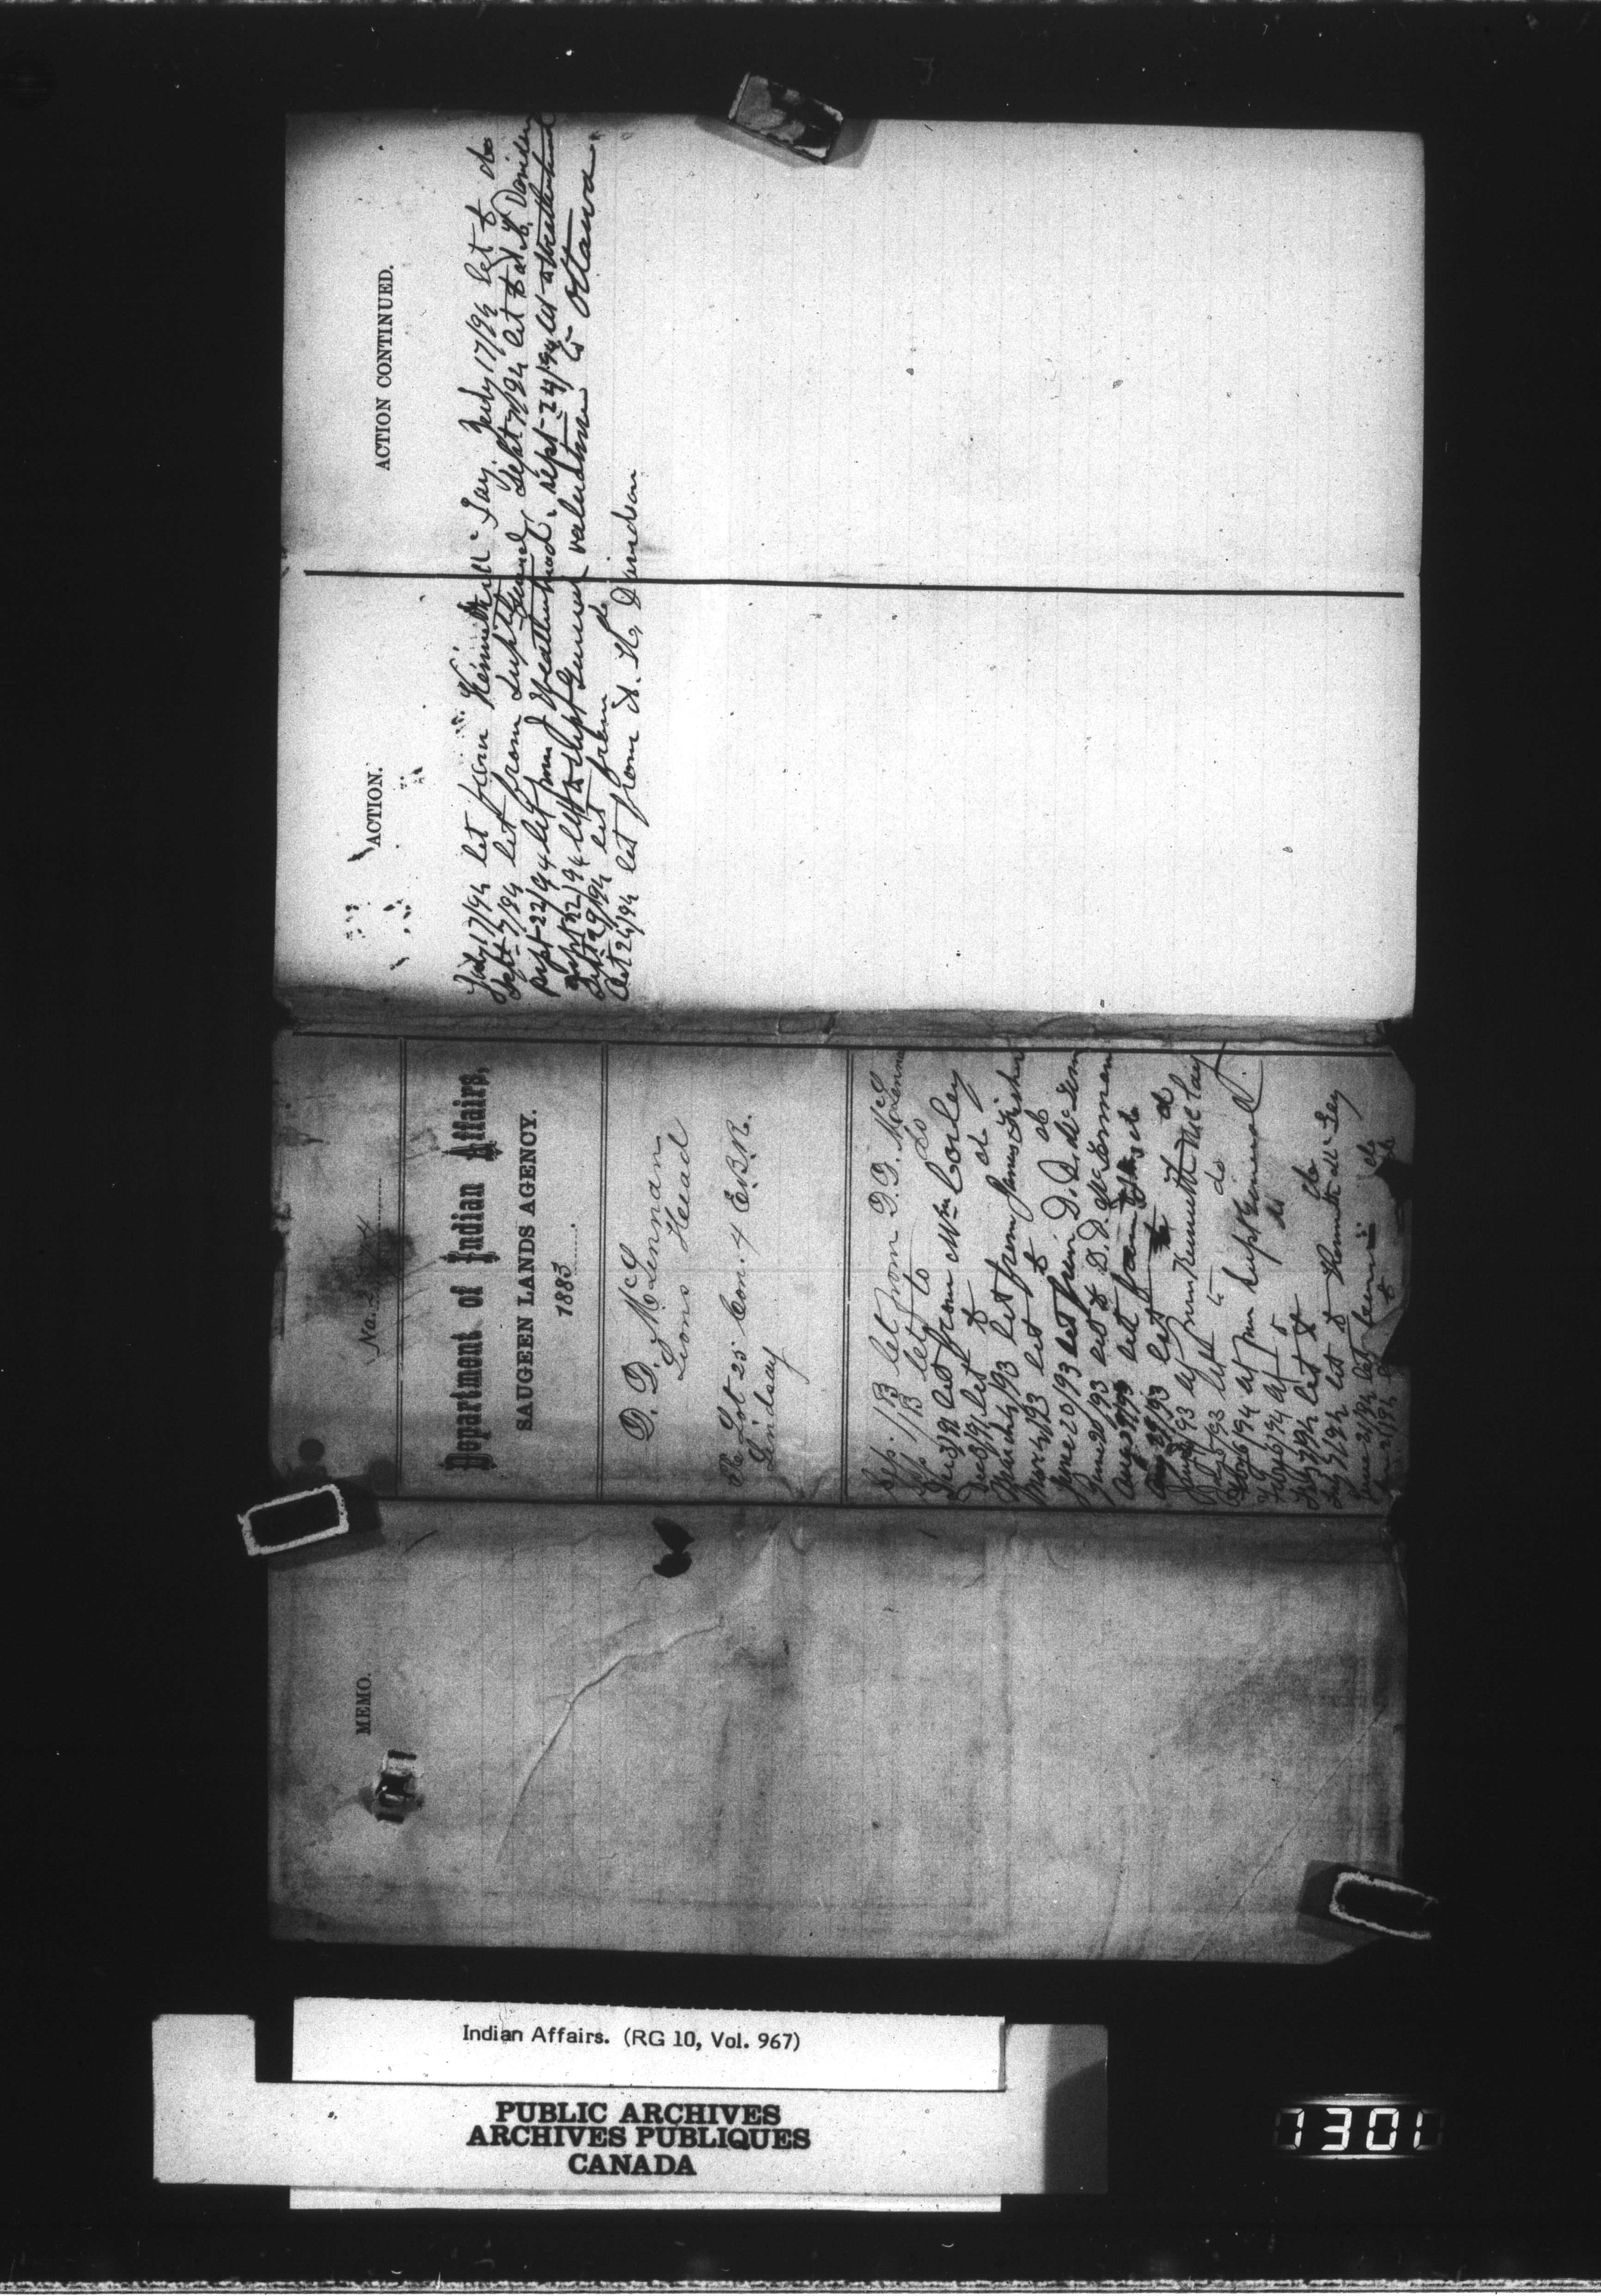 ACTION.
ACTION CONTINUED.
July 17/94 let from Kenneth McKay. July 17/94 let to do
Sept 7/94 let from Supt General Sept 7/94 let to A. K. Davidson
Sept 22/94 let from Weatherhead. Sept 24/94 let to Weatherhead
Sept 22/94 let to Supt General valuation to Ottawa
Sept 29/94 let from do
Oct 24/94 let from A. K. Davidson
No.
Department of Indian Affairs,
SAUGEEN LANDS AGENCY.
1883
D. D. McLennan
Lions Head
Re Lot 25 Con. 4 E.B.R.
Lindsay
Sep. 1/83 let from D. D. McLennan
let to do
Dec 3/91 let from Wm Corley
Dec 8/91 let to do
March 4/93 let from James Fisher
Mar 4/93 let to do
June 20/93 let from D. D.
June 20/93 let to D. D.
Aug 29/93 let from
let to do
/93 let from Kenneth McKay
let to do
/94 let from Supt General
/94 let to do
July 9/94 let to Kenneth McKay
June 21/94 let from do
June 21/94
MEMO.
Indian Affairs. (RG 10, Vol. 967)
PUBLIC ARCHIVES
ARCHIVES PUBLIQUES
CANADA
1301